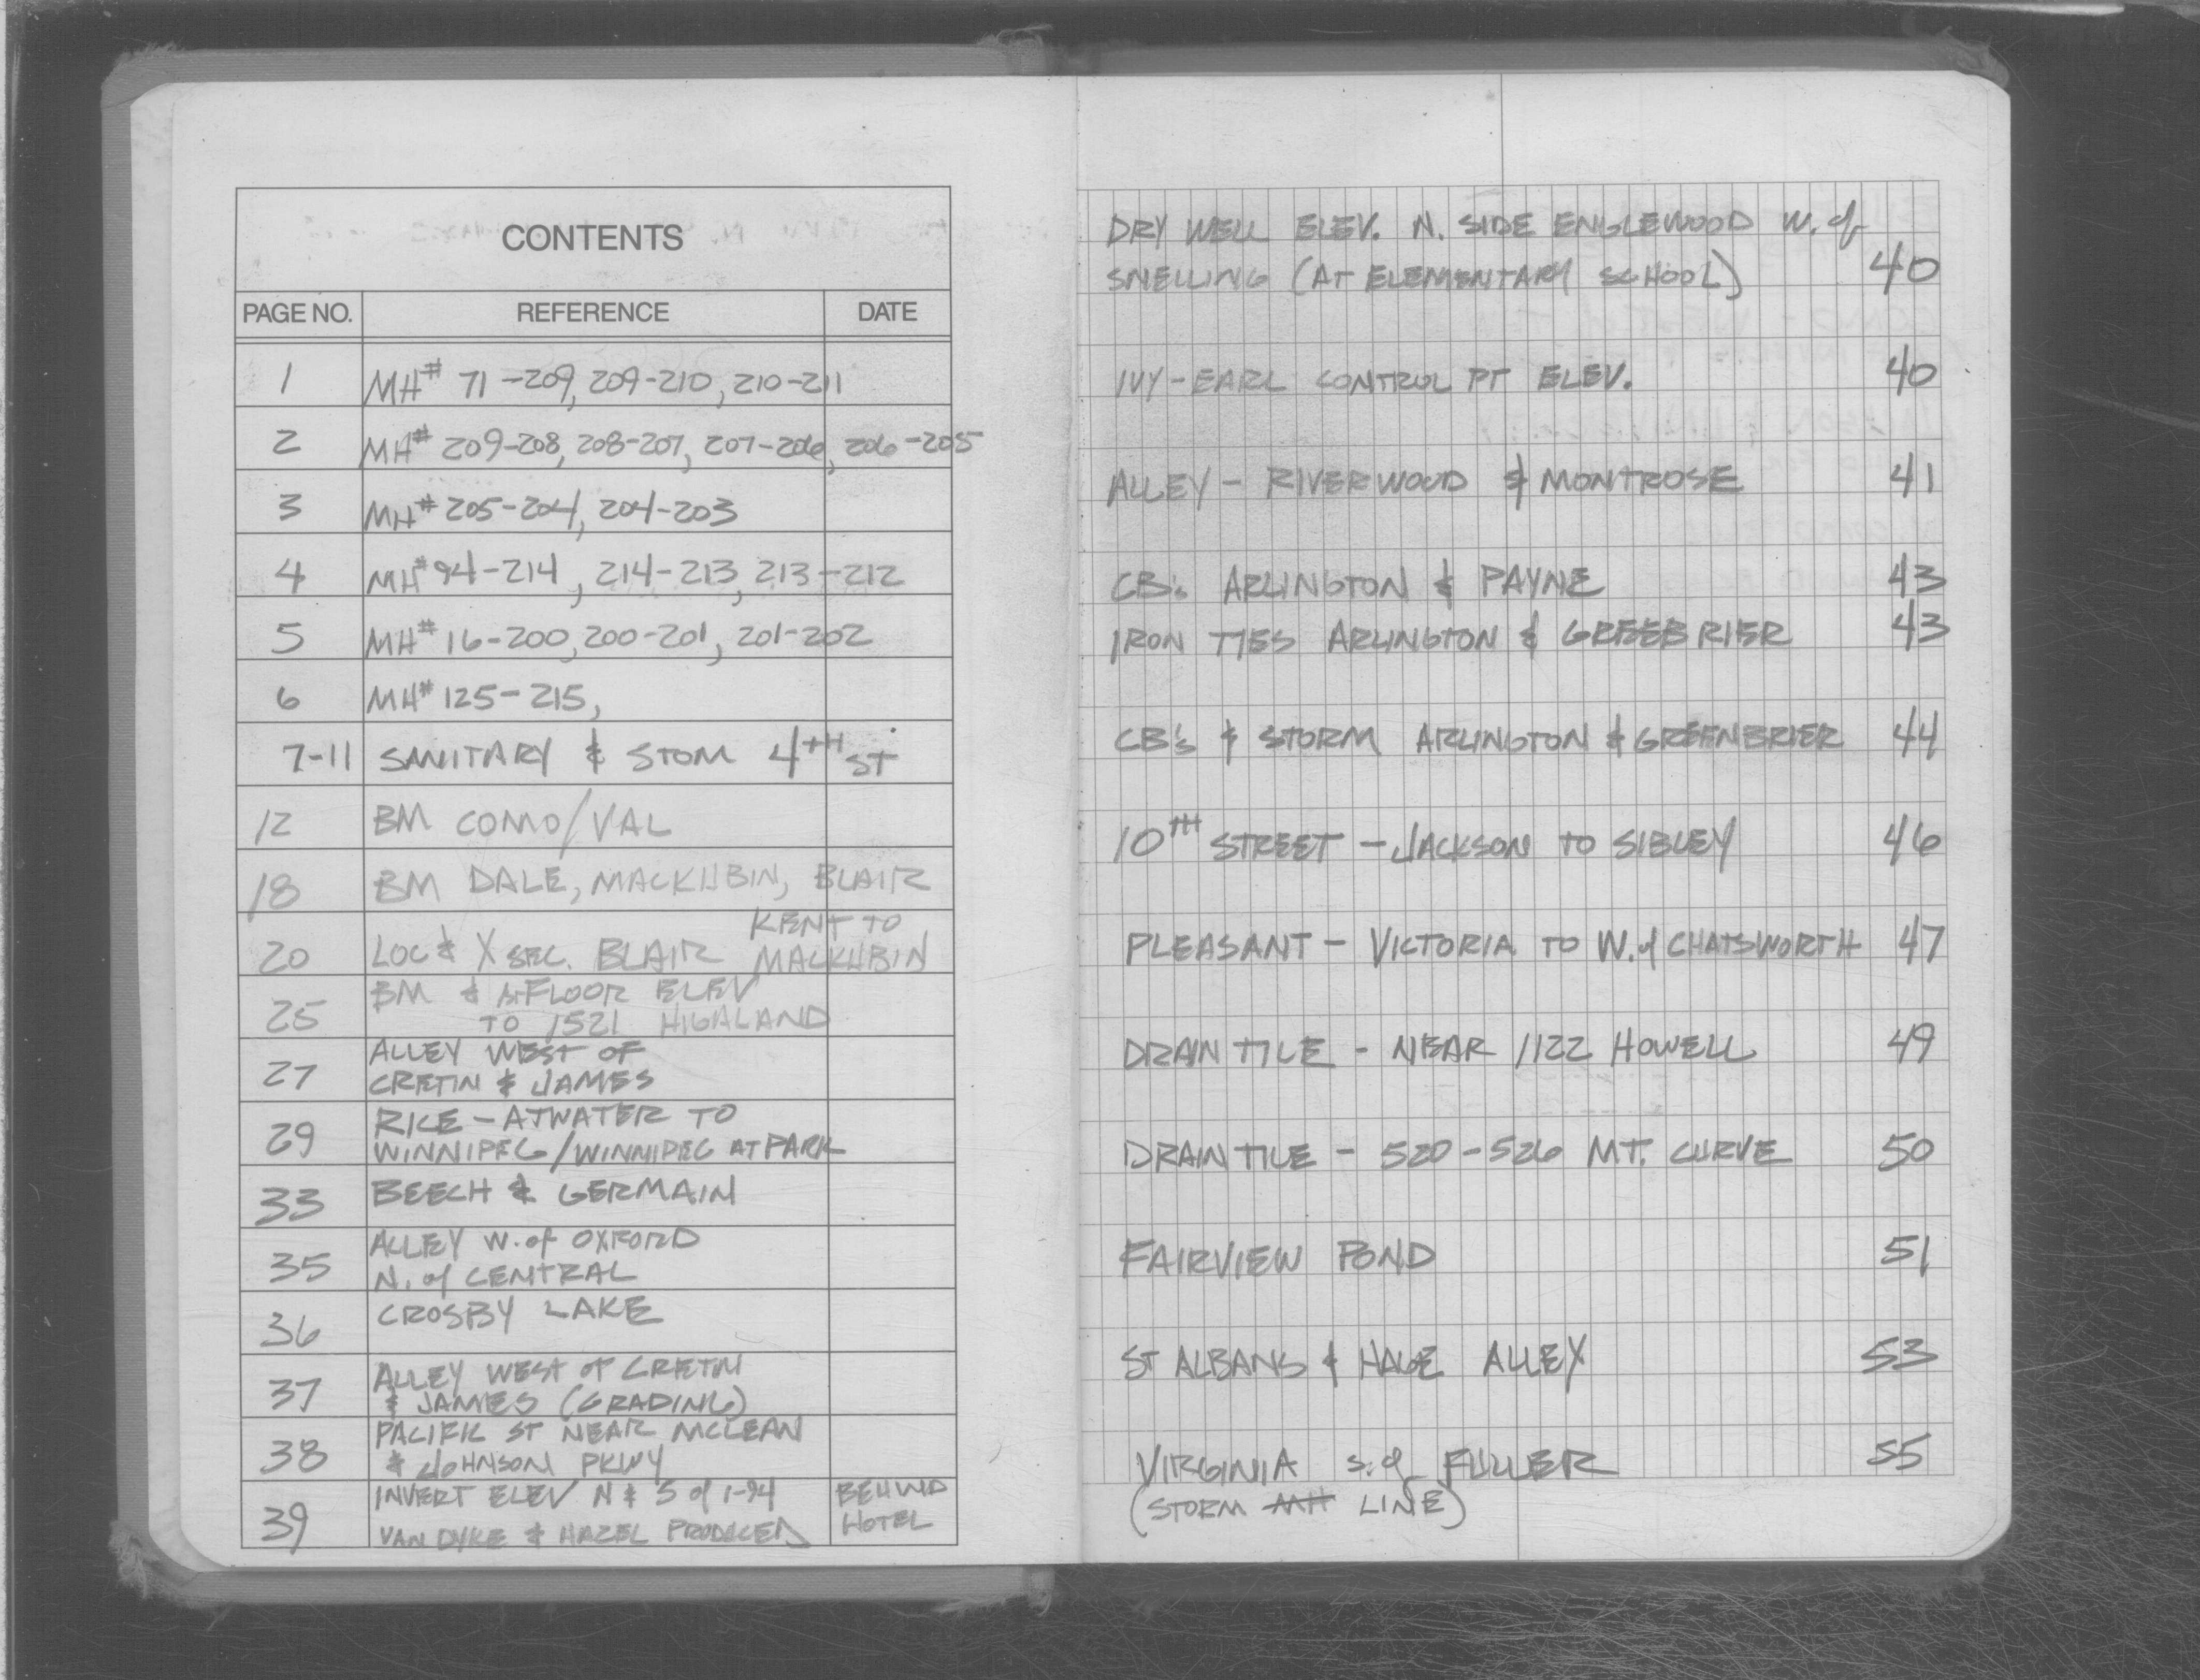 CONTENTS
PAGE NO. REFERENCE DATE
1 MH# 71-209, 209-210, 210-211
2 MH# 209-208, 208-207, 207-206, 206-205
3 MH# 205-204, 204-203
4 MH# 94-214, 214-213, 213-212
5 MH# 16-200, 200-201, 201-202
6 MH# 125-215,
7-11 SANITARY & STOM 4TH ST
12 BM COMO/VAL
18 BM DALE, MACKUBIN, BLAIR
KENT TO
20 LOC & X SEC. BLAIR MACKUBIN
BM & FLOOR ELEV
25 TO 1521 HIGALAND
ALLEY WEST OF
27 CRETIN & JAMES
RICE - ATWATER TO
29 WINNIPEG/WINNIPEG AT PARK
33 BEECH & GERMAIN
ALLEY W. of OXFORD
35 N. of CENTRAL
36 CROSBY LAKE
ALLEY WEST OF CRETIN
37 & JAMES (GRADING)
PACIFIC ST NEAR MCLEAN
38 & JOHNSON PKWY
INVERT ELEV N & S of I-94 BEHIND
39 VAN DYKE & HAZEL PRODUCED HOTEL
DRY WELL ELEV. N. SIDE ENGLEWOOD W. of
SNELLING (AT ELEMENTARY SCHOOL) 40
IVY-EARL CONTROL PT ELEV. 40
ALLEY - RIVERWOOD & MONTROSE 41
CB's ARLINGTON & PAYNE 43
IRON TIES ARLINGTON & GREEBRIER 43
CB's & STORM ARLINGTON & GREENBRIER 44
10TH STREET - JACKSON TO SIBLEY 46
PLEASANT - VICTORIA TO W. of CHATSWORTH 47
DRAIN TILE - NEAR 1122 HOWELL 49
DRAIN TILE - 520-526 MT. CURVE 50
FAIRVIEW POND 51
ST ALBANS & HAGE ALLEY 53
VIRGINIA S. of FULLER 55
(STORM MH LINE)